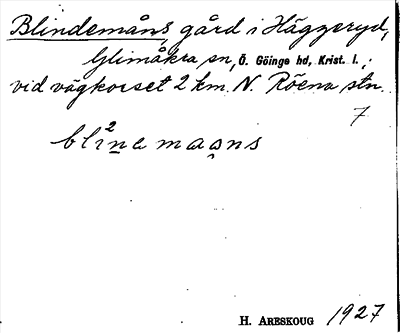 Blindemåns gård i Häggeryd,
Glimåkra sn, Ö. Göinge hd, Krist. l.,
vid vägkorset 2 km. N. Röena stn.
7
bli²nemaans
H. Areskoug 1927